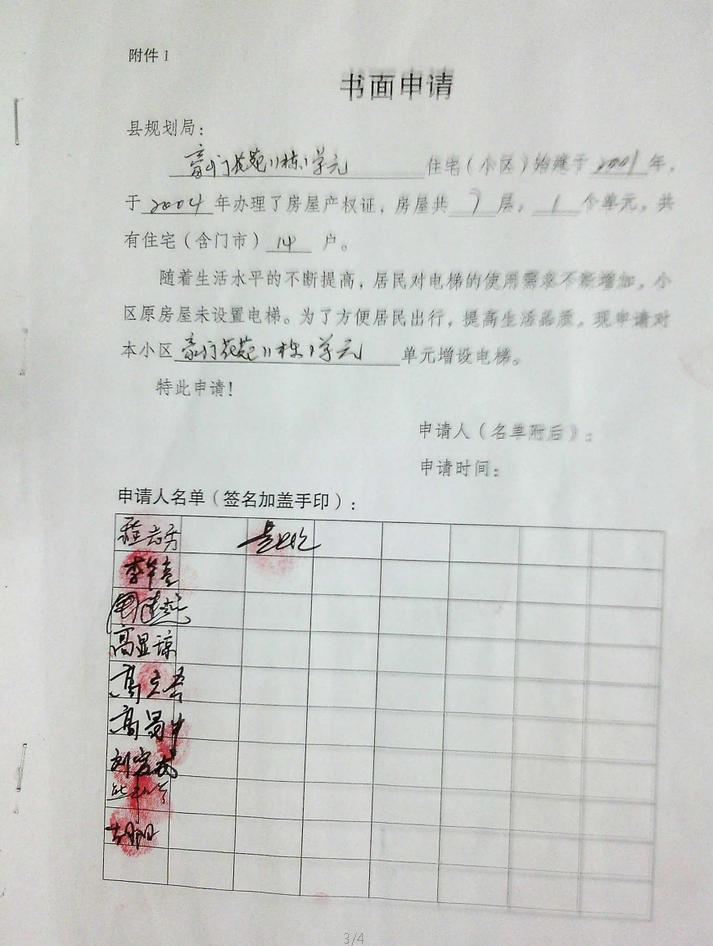 附件1
书面申请
县规划局：
豪门花苑11栋1单元 住宅（小区）始建于2001年，
于2004年办理了房屋产权证，房屋共7层，1个单元，共
有住宅（含门市）14户。
随着生活水平的不断提高，居民对电梯的使用需求不断增加，小
区原房屋未设置电梯。为了方便居民出行，提高生活品质，现申请对
本小区豪门花苑11栋1单元 单元增设电梯。
特此申请！
申请人（名单附后）：
申请时间：
申请人名单（签名加盖手印）：
高显琼
3/4